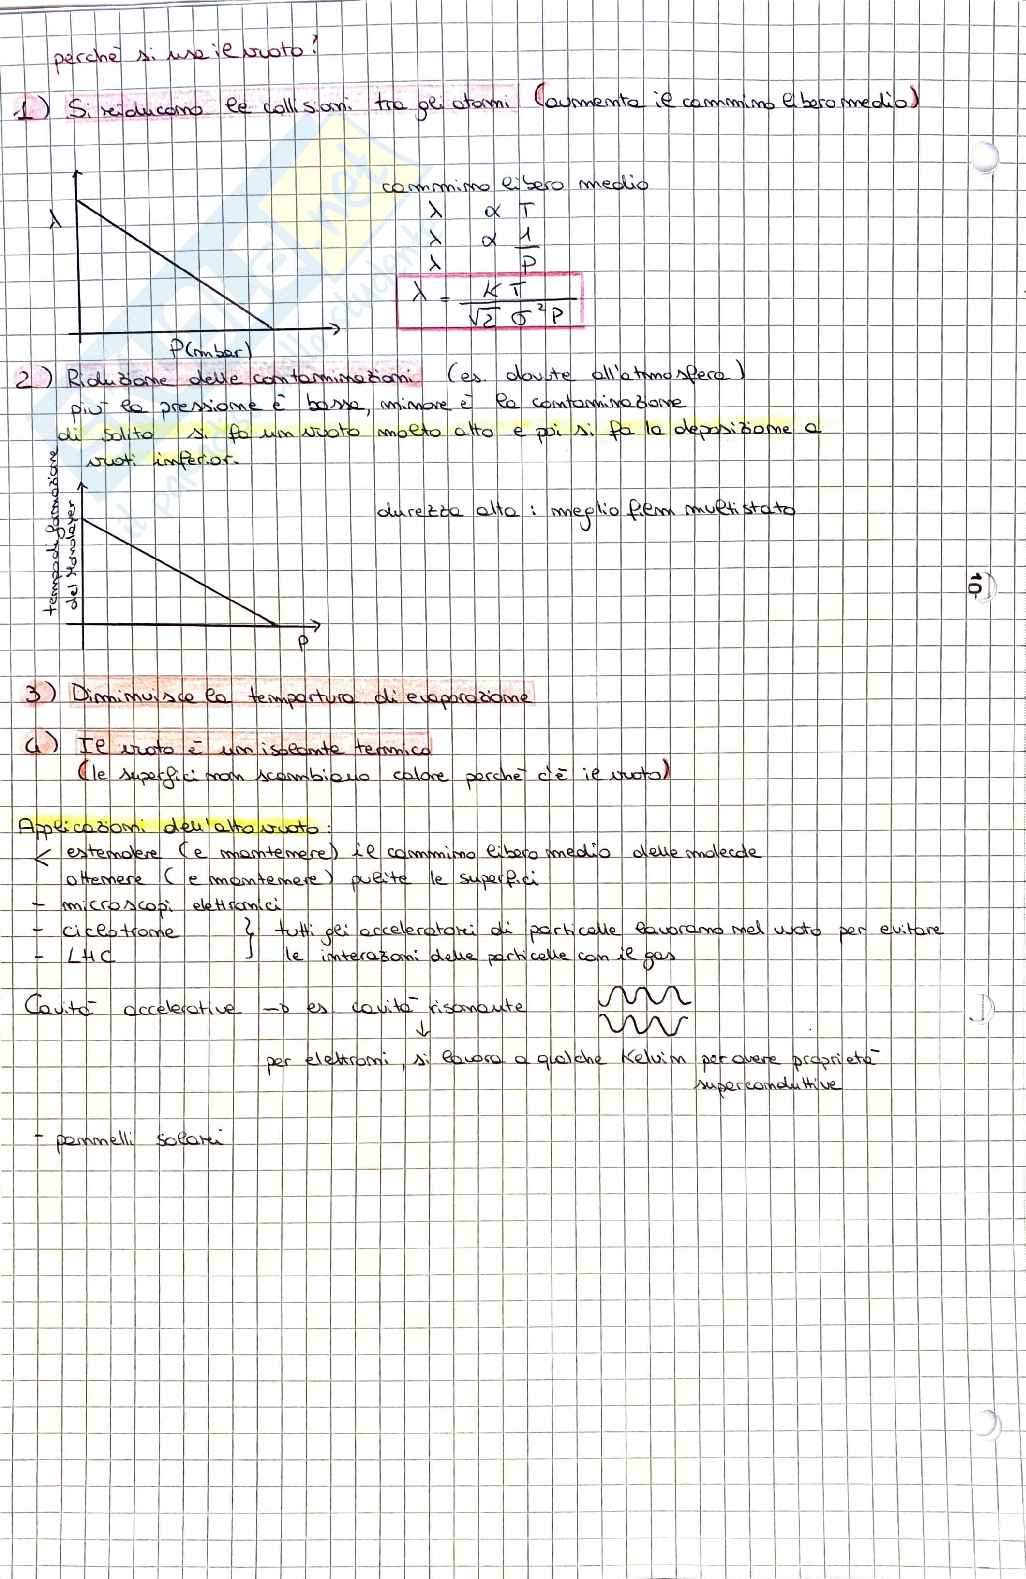 perchè si usa il vuoto?
1) Si riducono le collisioni tra gli atomi (aumenta il cammino libero medio)
cammino libero medio
λ
λ ∝ T
λ ∝ 1/P
λ
λ = KT / √2 σ² P
P(mbar)
2) Riduzione delle contaminazioni (es. dovute all'atmosfera)
più la pressione è bassa, minore è la contaminazione
di solito si fa un vuoto molto alto e poi si fa la deposizione a
vuoti inferiori.
tempo di formazione
del Monolayer
durezza alta : meglio film multistato
P
3) Diminuisce la tempertura di evaporazione
4) Il vuoto è un isolante termico
(le superfici non scambiano calore perchè c'è il vuoto)
Applicazioni dell'alto vuoto:
< estendere (e mantenere) il cammino libero medio delle molecole
ottenere (e mantenere) pulite le superfici
- microscopi elettronici
- ciclotrone } tutti gli acceleratori di particelle lavorano nel vuoto per evitare
- LHC le interazioni delle particelle con il gas
Cavità accelerative → es cavità risonante
↓
per elettroni, si lavora a qualche Kelvin per avere proprietà
superconduttive
- pannelli solari